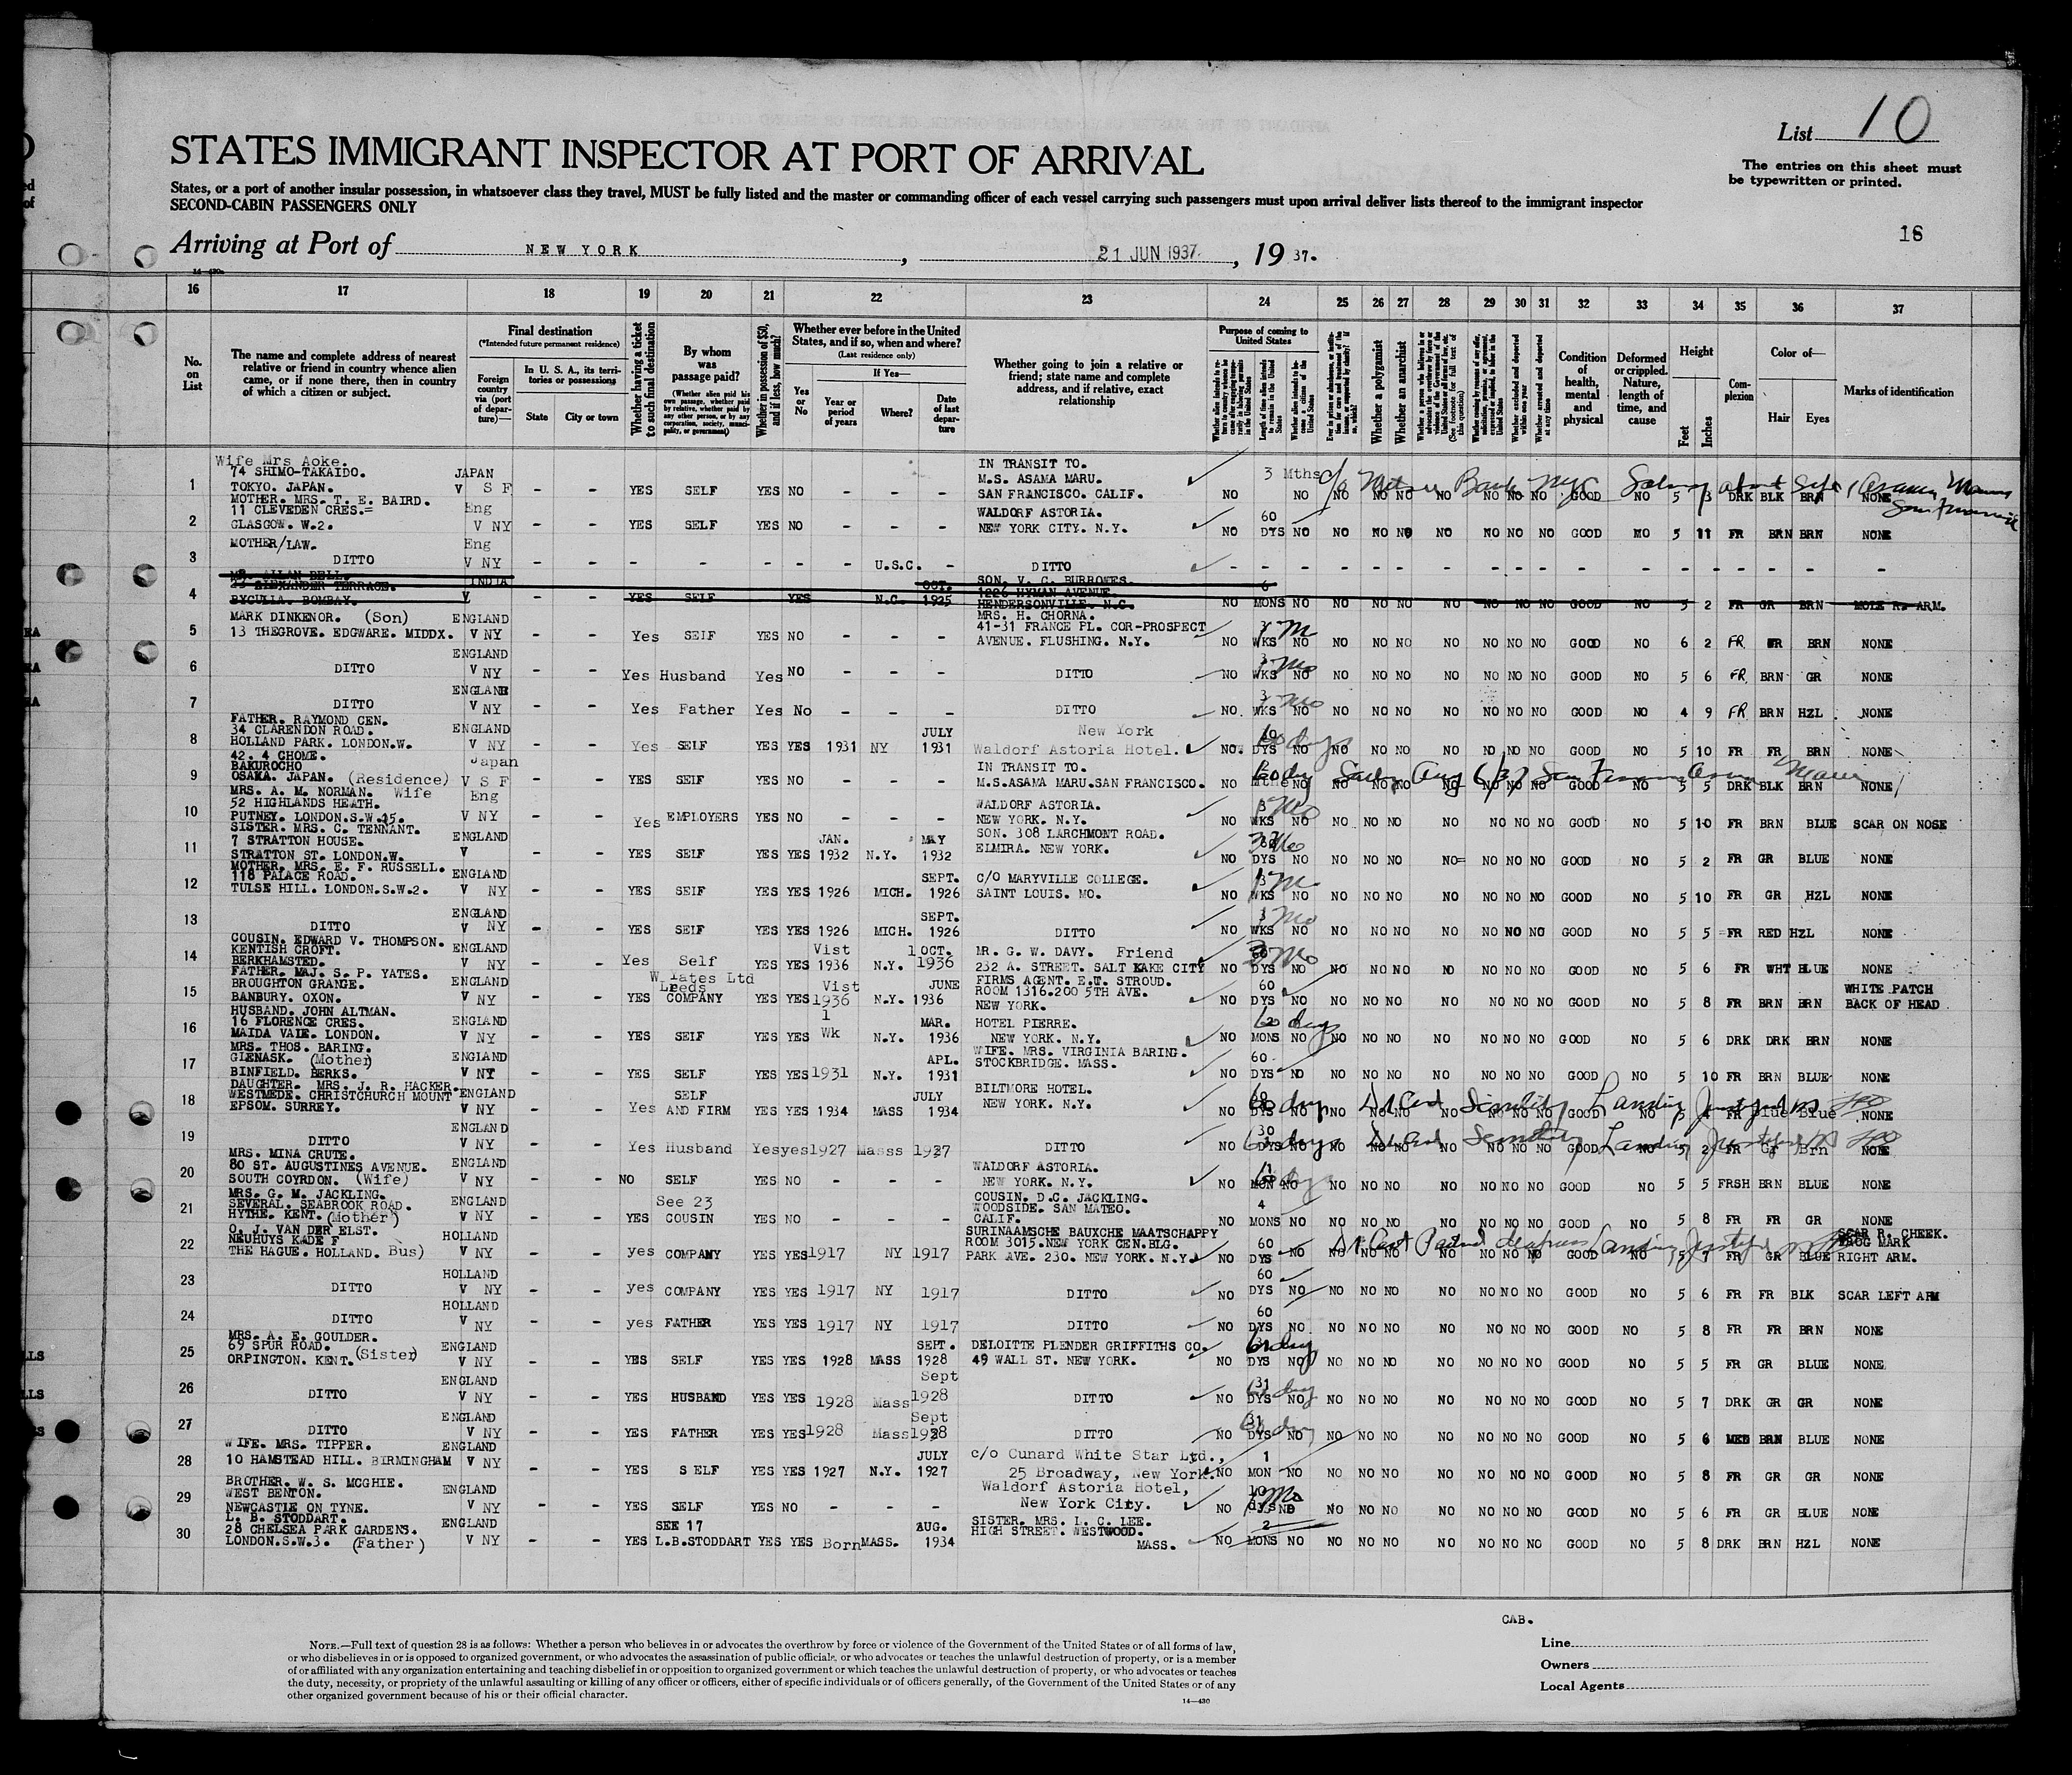 List 10
STATES IMMIGRANT INSPECTOR AT PORT OF ARRIVAL
The entries on this sheet must
be typewritten or printed.
States, or a port of another insular possession, in whatsoever class they travel, MUST be fully listed and the master or commanding officer of each vessel carrying such passengers must upon arrival deliver lists thereof to the immigrant inspector
SECOND-CABIN PASSENGERS ONLY
16
Arriving at Port of NEW YORK, 21 JUN 1937, 19 37.
16 17 18 19 20 21 22 23 24 25 26 27 28 29 30 31 32 33 34 35 36 37
No. on List
The name and complete address of nearest relative or friend in country whence alien came, or if none there, then in country of which a citizen or subject.
Final destination
(*Intended future permanent residence)
Foreign country via (port of departure)—
In U. S. A., its territories or possessions
State
City or town
Whether having a ticket to such final destination
By whom was passage paid?
(Whether alien paid his own passage, whether paid by relative, whether paid by any other person, or by any corporation, society, municipality, or government)
Whether in possession of $50, and if less, how much?
Whether ever before in the United States, and if so, when and where?
(Last residence only)
If Yes—
Yes or No
Year or period of years
Where?
Date of last departure
Whether going to join a relative or friend; state name and complete address, and if relative, exact relationship
Purpose of coming to United States
Whether a polygamist
Whether an anarchist
Condition of health, mental and physical
Deformed or crippled. Nature, length of time, and cause
Height
Feet
Inches
Complexion
Color of—
Hair
Eyes
Marks of identification
1 Wife Mrs Aoke. 74 SHIMO-TAKAIDO. TOKYO. JAPAN. JAPAN V S F - - YES SELF YES NO - - - IN TRANSIT TO. M.S. ASAMA MARU. SAN FRANCISCO. CALIF. NO 3 Mths NO NO NO NO NO NO NO NO GOOD NO 5 3 DRK BLK BRN NONE
2 MOTHER. MRS. T. E. BAIRD. 11 CLEVEDEN CRES.= GLASGOW. W.2. Eng V NY - - YES SELF YES NO - - - WALDORF ASTORIA. NEW YORK CITY. N.Y. NO 60 DYS NO NO NO NO NO NO NO NO GOOD NO 5 11 FR BRN BRN NONE
3 MOTHER/LAW. DITTO Eng V NY - - - - - - - U.S.C. - DITTO - - - - - - - - - - - - - - - - - -
4 MR. ALLAN BELL. ALEXANDER TERRACE. BYCULLA. BOMBAY. INDIA V YES SELF YES N.C. OCT. 1925 SON, V. C. BURROWES. 1226 HYMAN AVENUE. HENDERSONVILLE. N.C. NO 6 MONS NO NO NO NO NO NO NO NO GOOD NO 5 2 FR GR BRN MOLE R. ARM.
5 MARK DINKENOR. (Son) 13 THEGROVE. EDGWARE. MIDDX. ENGLAND V NY - - Yes SELF YES NO - - - MRS. H. CHORNA. 41-31 FRANCE PL. COR-PROSPECT AVENUE. FLUSHING. N.Y. NO WKS NO NO NO NO NO NO NO NO GOOD NO 6 2 FR BRN NONE
6 DITTO ENGLAND V NY - - Yes Husband Yes NO - - - DITTO NO 3 WKS NO NO NO NO NO NO NO NO GOOD NO 5 6 FR BRN GR NONE
7 DITTO ENGLAND V NY - - Yes Father Yes No - - - DITTO NO. 3 WKS NO NO NO NO NO NO NO NO GOOD NO 4 9 FR BRN HZL NONE
8 FATHER. RAYMOND CEN. 34 CLARENDON ROAD. HOLLAND PARK. LONDON.W. ENGLAND V NY - - Yes SELF YES YES 1931 NY JULY 1931 New York Waldorf Astoria Hotel. NO. DYS NO NO NO NO NO NO NO NO GOOD NO 5 10 FR FR BRN NONE
9 42. 4 CHOME. BAKUROCHO OSAKA. JAPAN. (Residence) Japan V S F - - YES SELF YES NO - - - IN TRANSIT TO. M.S.ASAMA MARU.SAN FRANCISCO. NO NO NO NO NO NO NO NO NO GOOD NO 5 5 DRK BLK BRN NONE
10 MRS. A. M. NORMAN. Wife 52 HIGHLANDS HEATH. PUTNEY. LONDON.S.W.15. Eng V NY - - Yes EMPLOYERS YES NO - - - WALDORF ASTORIA. NEW YORK. N.Y. NO 3 WKS NO NO NO NO NO NO NO NO GOOD NO 5 10 FR BRN BLUE SCAR ON NOSE
11 SISTER. MRS. C. TENNANT. 7 STRATTON HOUSE. STRATTON ST. LONDON.W. ENGLAND V - - YES SELF YES YES JAN. 1932 N.Y. MAY 1932 SON. 308 LARCHMONT ROAD. ELMIRA. NEW YORK. NO DYS NO NO NO NO NO= NO NO NO GOOD NO 5 2 FR GR BLUE NONE
12 MOTHER. MRS. E. F. RUSSELL. 118 PALACE ROAD. TULSE HILL. LONDON.S.W.2. ENGLAND V NY - - YES SELF YES YES 1926 MICH. SEPT. 1926 C/O MARYVILLE COLLEGE. SAINT LOUIS. MO. NO 3 WKS NO NO NO NO NO NO NO NO GOOD NO 5 10 FR GR HZL NONE
13 DITTO ENGLAND V NY - - YES SELF YES YES 1926 MICH. SEPT. 1926 DITTO NO 3 WKS NO NO NO NO NO NO NO NO GOOD NO 5 5 FR RED HZL NONE
14 COUSIN. EDWARD V. THOMPSON. KENTISH CROFT. BERKHAMSTED. ENGLAND V NY - - Yes Self YES YES Vist 1936 N.Y. 1 OCT. 1936 MR. G. W. DAVY. Friend 232 A. STREET. SALT KAKE CITY NO DYS NO NO NO NO NO NO NO NO GOOD NO 5 6 FR WHT BLUE NONE
15 FATHER. MAJ. S. P. YATES. BROUGHTON GRANGE. BANBURY. OXON. ENGLAND V NY - - YES W.Yates Ltd Leeds COMPANY YES YES Vist 1936 N.Y. JUNE 1936 FIRMS AGENT. E.W. STROUD. ROOM 1316.200 5TH AVE. NEW YORK. NO 60 DYS NO NO NO NO NO NO NO NO GOOD NO 5 8 FR BRN BRN WHITE PATCH BACK OF HEAD
16 HUSBAND. JOHN ALTMAN. 16 FLORENCE CRES. MAIDA VALE. LONDON. ENGLAND V NY - - YES SELF YES YES 1 Wk N.Y. MAR. 1936 HOTEL PIERRE. NEW YORK. N.Y. NO 60 days MONS NO NO NO NO NO NO NO NO GOOD NO 5 6 DRK DRK BRN NONE
17 MRS. THOS. BARING. GLENASK. (Mother) BINFIELD. BERKS. ENGLAND V NY - - YES SELF YES YES 1931 N.Y. APL. 1931 WIFE. MRS. VIRGINIA BARING. STOCKBRIDGE. MASS. NO 60 DYS NO NO NO NO NO NO NO NO GOOD NO 5 10 FR BRN BLUE NONE
18 DAUGHTER. MRS. J. R. HACKER. WESTMEDE. CHRISTCHURCH MOUNT EPSOM. SURREY. ENGLAND V NY - - Yes SELF AND FIRM YES YES 1934 MASS JULY 1934 BILTMORE HOTEL. NEW YORK. N.Y. NO DYS NO NO NO NO NO NO NO NO GOOD NO 5 FR Blue NONE
19 DITTO ENGLAND V NY - - Yes Husband Yes yes 1927 Masss 1927 DITTO NO 30 DYS NO NO NO NO NO NO NO NO GOOD NO 5 2 FR Gr Brn NONE
20 MRS. MINA CRUTE. 80 ST. AUGUSTINES AVENUE. SOUTH COYRDON. (Wife) ENGLAND V NY - - NO SELF YES NO - - - WALDORF ASTORIA. NEW YORK. N.Y. NO MON NO NO NO NO NO NO NO NO GOOD NO 5 5 FRSH BRN BLUE NONE
21 MRS. G. M. JACKLING. SEVERAL. SEABROOK ROAD. HYTHE. KENT. (Mother) ENGLAND V NY - - YES See 23 COUSIN YES NO - - - COUSIN. D.C. JACKLING. WOODSIDE. SAN MATEO. CALIF. NO 4 MONS NO NO NO NO NO NO NO NO GOOD NO 5 8 FR FR GR NONE
22 O. J. VAN DER ELST. NEUHUYS KADE F THE HAGUE. HOLLAND. Bus) HOLLAND V NY - - yes COMPANY YES YES 1917 NY 1917 SURINAAMSCHE BAUXCHE MAATSCHAPPY ROOM 3015.NEW YORK CEN.BLG. PARK AVE. 230. NEW YORK. N.Y. NO 60 DYS NO NO NO NO NO NO NO NO GOOD NO 5 7 FR GR BLUE SCAR R. CHEEK. MARK RIGHT ARM.
23 DITTO HOLLAND V NY - - yes COMPANY YES YES 1917 NY 1917 DITTO NO 60 DYS NO NO NO NO NO NO NO NO GOOD NO 5 6 FR FR BLK SCAR LEFT ARM
24 DITTO HOLLAND V NY - - yes FATHER YES YES 1917 NY 1917 DITTO NO 60 DYS NO NO NO NO NO NO NO NO GOOD NO 5 8 FR FR BRN NONE
25 MRS. A. E. GOULDER. 69 SPUR ROAD. ORPINGTON. KENT. (Sister) ENGLAND V NY - - YES SELF YES YES 1928 MASS SEPT. 1928 DELOITTE PLENDER GRIFFITHS CO. 49 WALL ST. NEW YORK. NO DYS NO NO NO NO NO NO NO NO GOOD NO 5 5 FR GR BLUE NONE
26 DITTO ENGLAND V NY - - YES HUSBAND YES YES 1928 Mass Sept 1928 DITTO NO 31 DYS NO NO NO NO NO NO NO NO GOOD NO 5 7 DRK GR GR NONE
27 DITTO ENGLAND V NY - - YES FATHER YES YES 1928 Mass Sept 1928 DITTO NO 31 DYS NO NO NO NO NO NO NO NO GOOD NO 5 6 MED BRN BLUE NONE
28 WIFE. MRS. TIPPER. 10 HAMSTEAD HILL. BIRMINGHAM ENGLAND V NY - - YES SELF YES YES 1927 N.Y. JULY 1927 c/o Cunard White Star Ltd., 25 Broadway, New York. NO 1 MON NO NO NO NO NO NO NO NO GOOD NO 5 8 FR GR GR NONE
29 BROTHER. W. S. MCGHIE. WEST BENTON. NEWCASTLE ON TYNE. ENGLAND V NY - - YES SELF YES NO - - - Waldorf Astoria Hotel, New York City. NO dys NO NO NO NO NO NO NO NO GOOD NO 5 6 FR GR BLUE NONE
30 L. B. STODDART. 28 CHELSEA PARK GARDENS. LONDON.S.W.3. (Father) ENGLAND V NY - - YES SEE 17 L.B.STODDART YES YES Born MASS. AUG. 1934 SISTER. MRS. L. C. LEE. HIGH STREET. WESTWOOD. MASS. NO 2 MONS NO NO NO NO NO NO NO NO GOOD NO 5 8 DRK BRN HZL NONE
CAB.
NOTE.—Full text of question 28 is as follows: Whether a person who believes in or advocates the overthrow by force or violence of the Government of the United States or of all forms of law,
or who disbelieves in or is opposed to organized government, or who advocates the assassination of public officials, or who advocates or teaches the unlawful destruction of property, or is a member
of or affiliated with any organization entertaining and teaching disbelief in or opposition to organized government or which teaches the unlawful destruction of property, or who advocates or teaches
the duty, necessity, or propriety of the unlawful assaulting or killing of any officer or officers, either of specific individuals or of officers generally, of the Government of the United States or of any
other organized government because of his or their official character.
14—430
Line
Owners
Local Agents